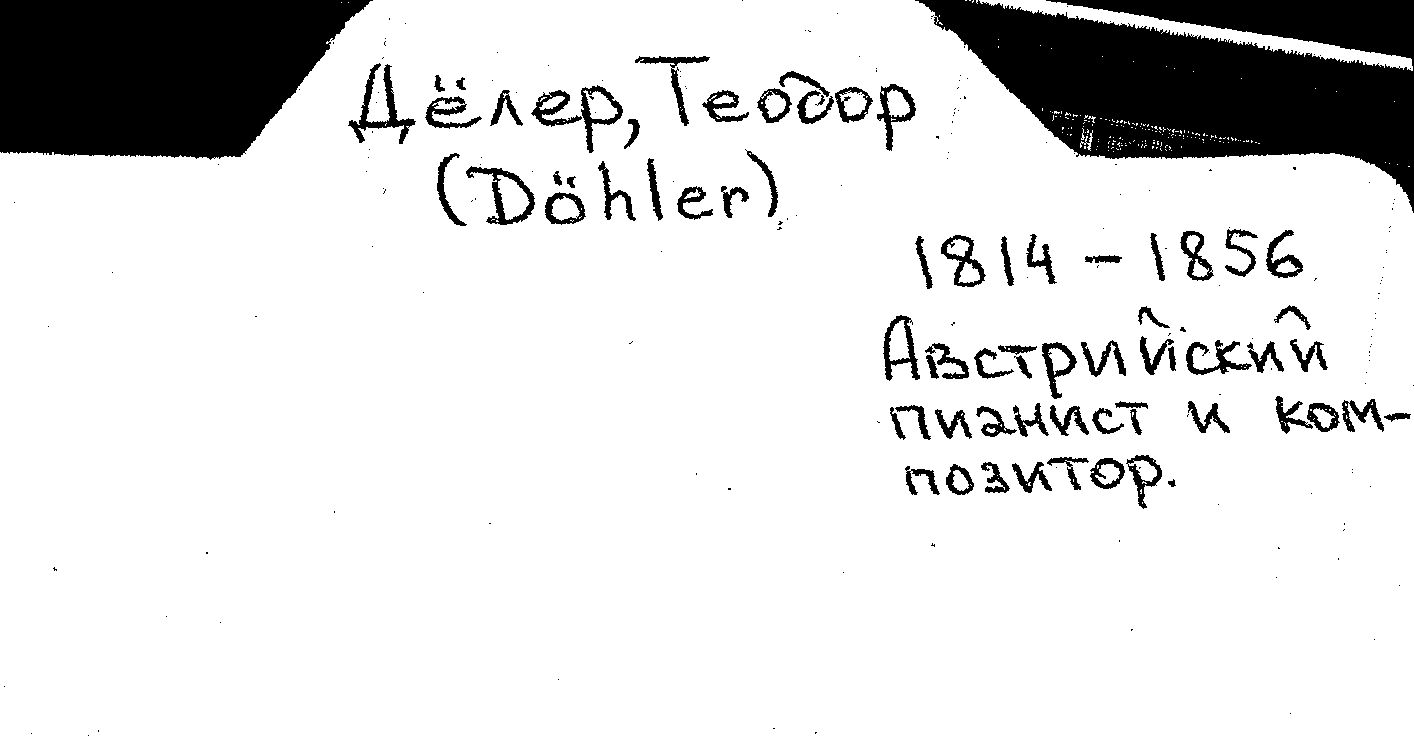 Дёлер, Теодор
(Döhler)
1814 – 1856
Австрийский
пианист и ком-
позитор.